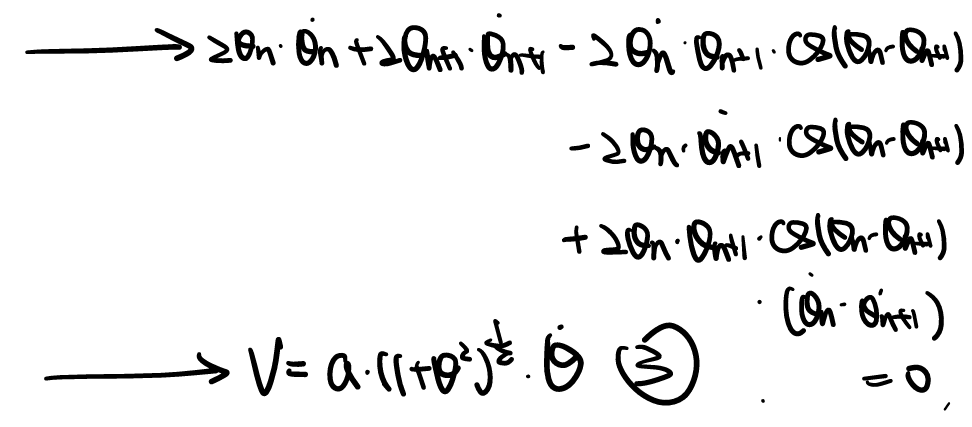 ⟶ 2θₙ·θ̇ₙ + 2θₙ₊₁·θ̇ₙ₊₁ − 2θ̇ₙ·θₙ₊₁·cos(θₙ-θₙ₊₁)
− 2θₙ·θ̇ₙ₊₁·cos(θₙ-θₙ₊₁)
+ 2θₙ·θₙ₊₁·cos(θₙ-θₙ₊₁)
·(θ̇ₙ-θ̇ₙ₊₁)
= 0
⟶ V = a·(1+θ²)^½·θ̇ ③